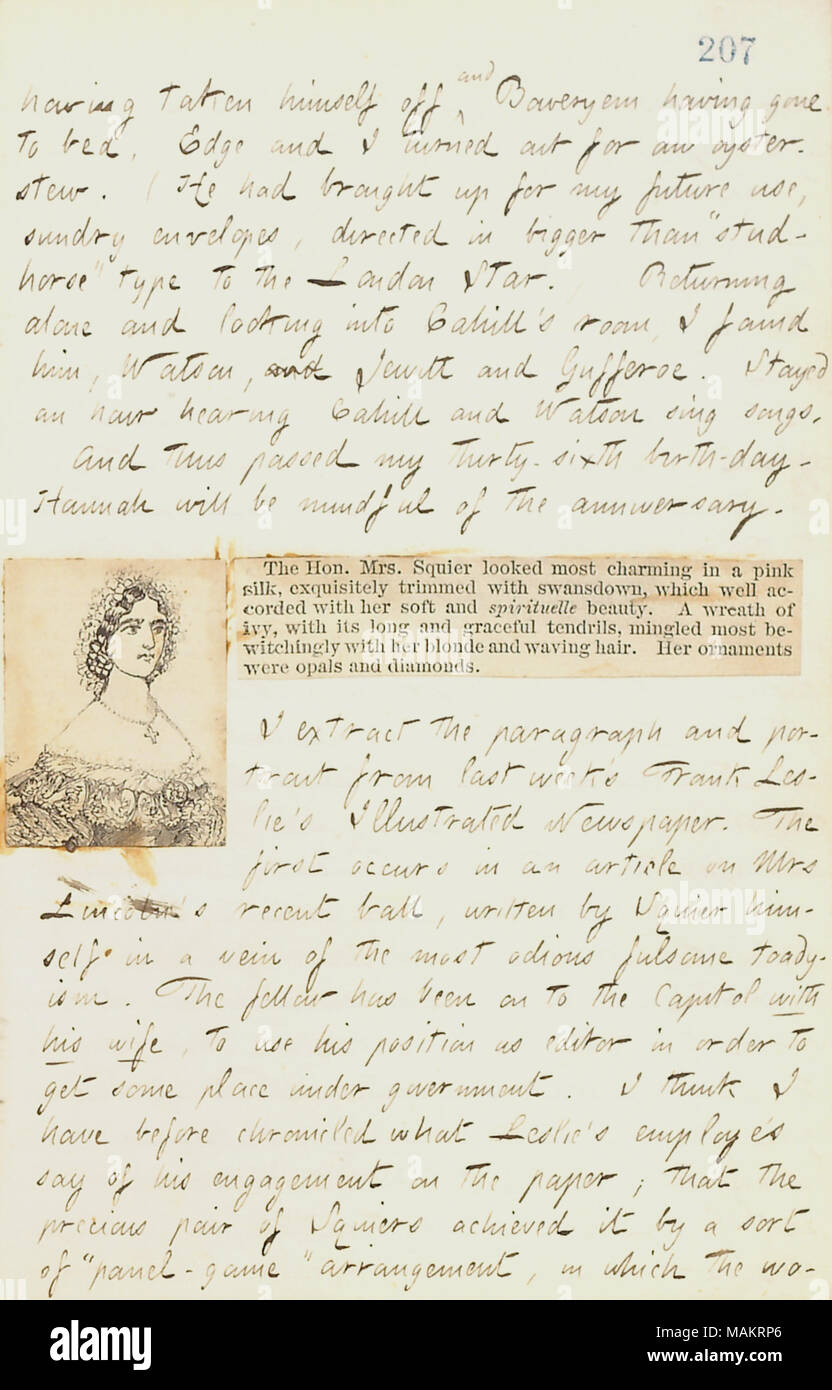 207
having taken himself off and Boweryem having gone
to bed, Edge and I turned out for an oyster-
stew. (He had brought up for my future use,
sundry envelopes, directed in bigger than "stud-
horse" type to the London Star.) Returning
alone and looking into Cahill's room, I found
him, Watson, and Jewitt and Gufferoe. Stayed
an hour hearing Cahill and Watson sing songs.
And thus passed my thirty-sixth birth-day-
Hannah will be mindful of the anniversary.
The Hon. Mrs. Squier looked most charming in a pink
silk, exquisitely trimmed with swansdown, which well ac-
corded with her soft and spirituelle beauty. A wreath of
ivy, with its long and graceful tendrils, mingled most be-
witchingly with her blonde and waving hair. Her ornaments
were opals and diamonds.
I extract the paragraph and por-
trait from last week's Frank Les-
lie's Illustrated Newspaper. The
first occurs in an article on Mrs
Lincoln's recent ball, written by Squier him-
self in a vein of the most odious fulsome toady-
ism. The fellow has been on to the Capitol with
his wife, to use his position as editor in order to
get some place under government. I think I
have before chronicled what Leslie's employe's
say of his engagement on the paper; that the
precious pair of Squiers achieved it by a sort
of "panel-game" arrangement, in which the wo-
alamy
Image ID: MAKRP6
www.alamy.com